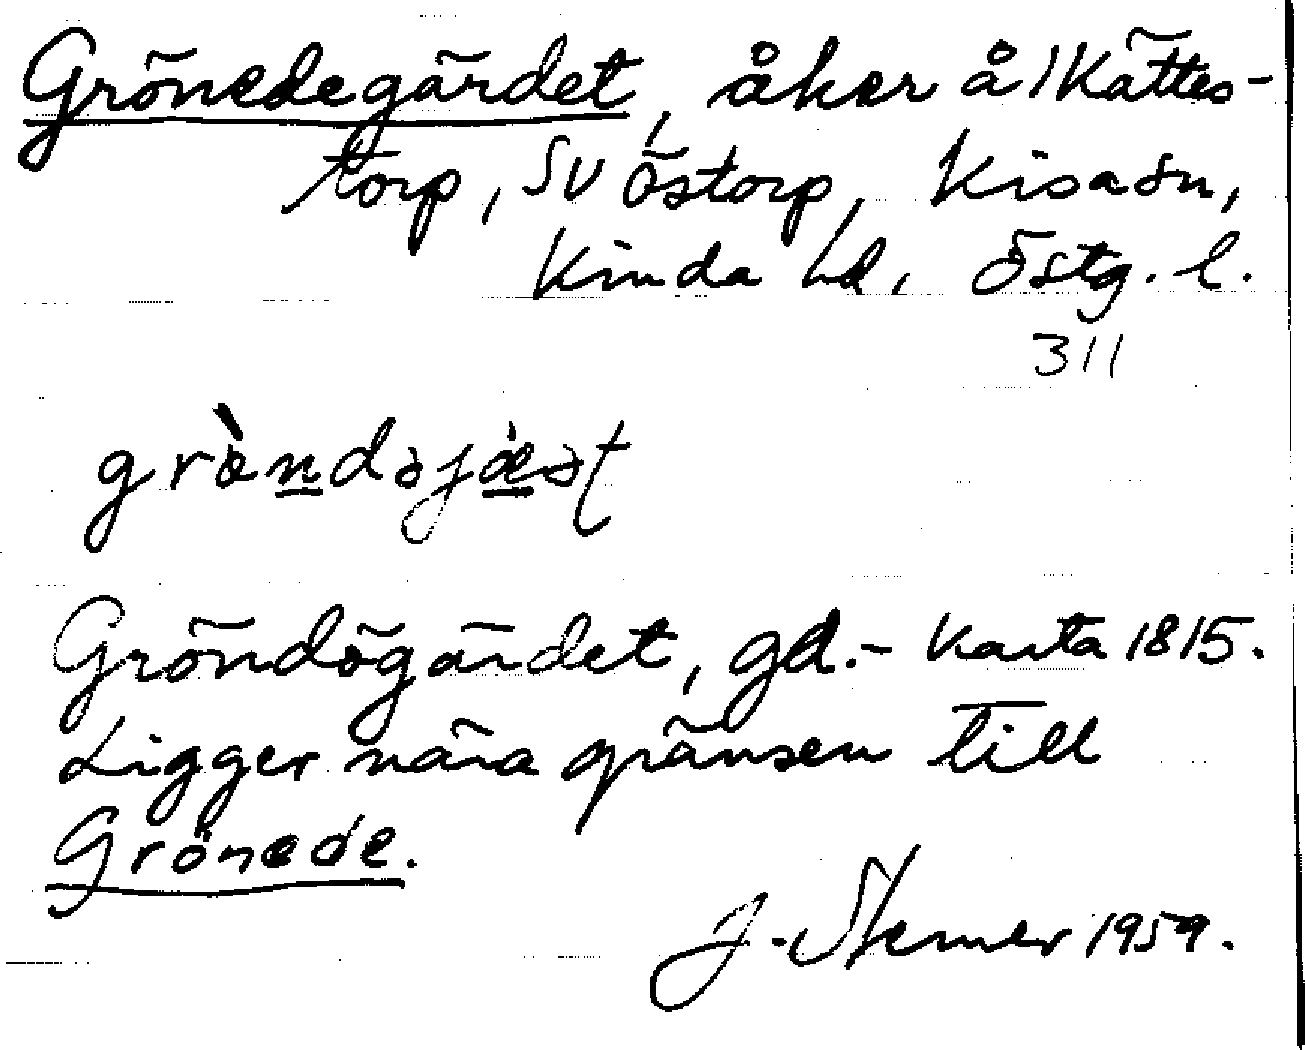 Grönedegärdet, åker å 1 Kättes-
torp, SV Östorp, Kisa sn,
Kinda hd, Östg. l.
311
grö̀ndəjæət
Gröndögärdet, gd. - Karta 1815.
Ligger nära gränsen till
Grönede.
J. 1959.